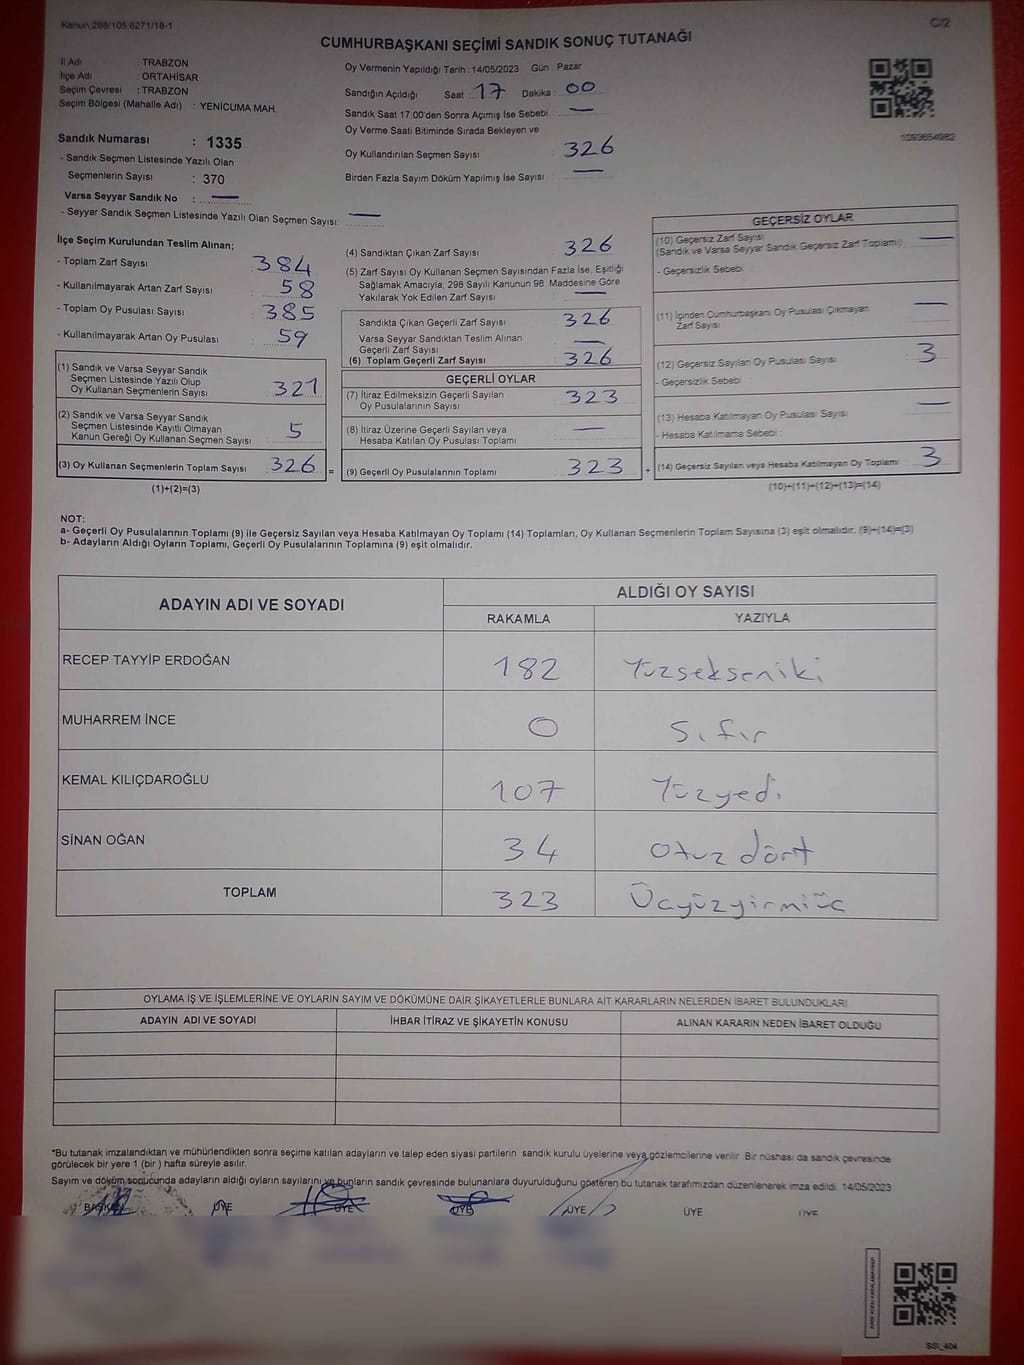 Kanun:298/105;6271/18-1
C/2
CUMHURBAŞKANI SEÇİMİ SANDIK SONUÇ TUTANAĞI
İl Adı : TRABZON
İlçe Adı : ORTAHİSAR
Seçim Çevresi : TRABZON
Seçim Bölgesi (Mahalle Adı) : YENİCUMA MAH.
Sandık Numarası : 1335
- Sandık Seçmen Listesinde Yazılı Olan
Seçmenlerin Sayısı : 370
Varsa Seyyar Sandık No : —
- Seyyar Sandık Seçmen Listesinde Yazılı Olan Seçmen Sayısı: —
Oy Vermenin Yapıldığı Tarih : 14/05/2023 Gün : Pazar
Sandığın Açıldığı Saat : 17 Dakika : 00
Sandık Saat 17:00'den Sonra Açımış İse Sebebi : —
Oy Verme Saati Bitiminde Sırada Bekleyen ve
Oy Kullandırılan Seçmen Sayısı : 326
Birden Fazla Sayım Döküm Yapılmış İse Sayısı : —
1093654982
İlçe Seçim Kurulundan Teslim Alınan;
- Toplam Zarf Sayısı : 384
- Kullanılmayarak Artan Zarf Sayısı : 58
- Toplam Oy Pusulası Sayısı : 385
- Kullanılmayarak Artan Oy Pusulası : 59
(1) Sandık ve Varsa Seyyar Sandık
Seçmen Listesinde Yazılı Olup
Oy Kullanan Seçmenlerin Sayısı : 321
(2) Sandık ve Varsa Seyyar Sandık
Seçmen Listesinde Kayıtlı Olmayan
Kanun Gereği Oy Kullanan Seçmen Sayısı : 5
(3) Oy Kullanan Seçmenlerin Toplam Sayısı : 326 =
(1)+(2)=(3)
(4) Sandıktan Çıkan Zarf Sayısı : 326
(5) Zarf Sayısı Oy Kullanan Seçmen Sayısından Fazla İse, Eşitliği
Sağlamak Amacıyla; 298 Sayılı Kanunun 98. Maddesine Göre
Yakılarak Yok Edilen Zarf Sayısı : —
Sandıkta Çıkan Geçerli Zarf Sayısı : 326
Varsa Seyyar Sandıktan Teslim Alınan
Geçerli Zarf Sayısı : —
(6) Toplam Geçerli Zarf Sayısı : 326
GEÇERLİ OYLAR
(7) İtiraz Edilmeksizin Geçerli Sayılan
Oy Pusulalarının Sayısı : 323
(8) İtiraz Üzerine Geçerli Sayılan veya
Hesaba Katılan Oy Pusulası Toplamı : —
(9) Geçerli Oy Pusulalarının Toplamı : 323 +
GEÇERSİZ OYLAR
(10) Geçersiz Zarf Sayısı
(Sandık ve Varsa Seyyar Sandık Geçersiz Zarf Toplamı) : —
- Geçersizlik Sebebi :
(11) İçinden Cumhurbaşkanı Oy Pusulası Çıkmayan
Zarf Sayısı : —
(12) Geçersiz Sayılan Oy Pusulası Sayısı : 3
- Geçersizlik Sebebi :
(13) Hesaba Katılmayan Oy Pusulası Sayısı : —
- Hesaba Katılmama Sebebi :
(14) Geçersiz Sayılan veya Hesaba Katılmayan Oy Toplamı : 3
(10)+(11)+(12)+(13)=(14)
NOT:
a- Geçerli Oy Pusulalarının Toplamı (9) ile Geçersiz Sayılan veya Hesaba Katılmayan Oy Toplamı (14) Toplamları, Oy Kullanan Seçmenlerin Toplam Sayısına (3) eşit olmalıdır. (9)+(14)=(3)
b- Adayların Aldığı Oyların Toplamı, Geçerli Oy Pusulalarının Toplamına (9) eşit olmalıdır.
ADAYIN ADI VE SOYADI ALDIĞI OY SAYISI
RAKAMLA YAZIYLA
RECEP TAYYİP ERDOĞAN 182 Yüzsekseniki
MUHARREM İNCE 0 Sıfır
KEMAL KILIÇDAROĞLU 107 Yüzyedi
SİNAN OĞAN 34 Otuz dört
TOPLAM 323 Üçyüzyirmiüç
OYLAMA İŞ VE İŞLEMLERİNE VE OYLARIN SAYIM VE DÖKÜMÜNE DAİR ŞİKAYETLERLE BUNLARA AİT KARARLARIN NELERDEN İBARET BULUNDUKLARI
ADAYIN ADI VE SOYADI İHBAR İTİRAZ VE ŞİKAYETİN KONUSU ALINAN KARARIN NEDEN İBARET OLDUĞU
*Bu tutanak imzalandıktan ve mühürlendikten sonra seçime katılan adayların ve talep eden siyasi partilerin sandık kurulu üyelerine veya gözlemcilerine verilir. Bir nüshası da sandık çevresinde
görülecek bir yere 1 (bir ) hafta süreyle asılır.
Sayım ve döküm sonucunda adayların aldığı oyların sayılarını ve bunların sandık çevresinde bulunanlara duyurulduğunu gösteren bu tutanak tarafımızdan düzenlenerek imza edildi. 14/05/2023
BAŞKAN ÜYE ÜYE ÜYE ÜYE ÜYE ÜYE
SSI_404